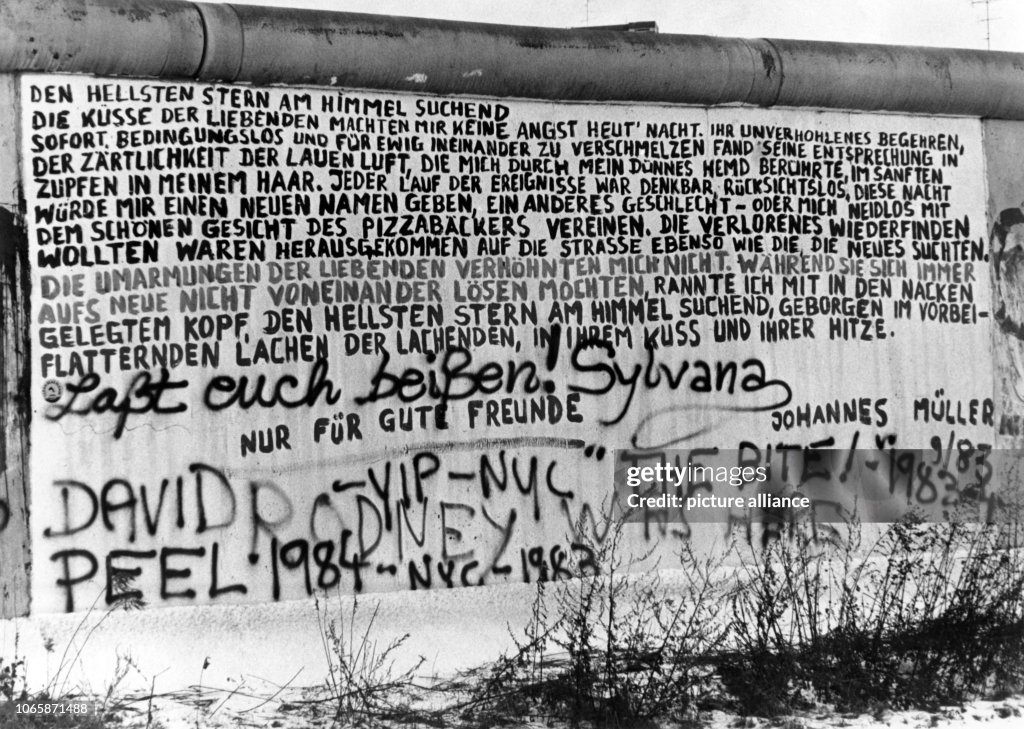 DEN HELLSTEN STERN AM HIMMEL SUCHEND
DIE KÜSSE DER LIEBENDEN MACHTEN MIR KEINE ANGST HEUT' NACHT. IHR UNVERHOHLENES BEGEHREN,
SOFORT, BEDINGUNGSLOS UND FÜR EWIG INEINANDER ZU VERSCHMELZEN FAND SEINE ENTSPRECHUNG IN
DER ZÄRTLICHKEIT DER LAUEN LUFT, DIE MICH DURCH MEIN DÜNNES HEMD BERÜHRTE, IM SANFTEN
ZUPFEN IN MEINEM HAAR. JEDER LAUF DER EREIGNISSE WAR DENKBAR, RÜCKSICHTSLOS, DIESE NACHT
WÜRDE MIR EINEN NEUEN NAMEN GEBEN, EIN ANDERES GESCHLECHT - ODER MICH NEIDLOS MIT
DEM SCHÖNEN GESICHT DES PIZZABÄCKERS VEREINEN. DIE VERLORENES WIEDERFINDEN
WOLLTEN WAREN HERAUSGEKOMMEN AUF DIE STRASSE EBENSO WIE DIE, DIE NEUES SUCHTEN.
DIE UMARMUNGEN DER LIEBENDEN VERHÖHNTEN MICH NICHT. WÄHREND SIE SICH IMMER
AUFS NEUE NICHT VONEINANDER LÖSEN MOCHTEN, RANNTE ICH MIT IN DEN NACKEN
GELEGTEM KOPF, DEN HELLSTEN STERN AM HIMMEL SUCHEND, GEBORGEN IM VORBEI-
FLATTERNDEN LACHEN DER LACHENDEN, IN IHREM KUSS UND IHRER HITZE.
Laßt euch beißen! Sylvana
NUR FÜR GUTE FREUNDE
JOHANNES MÜLLER
9/83
DAVID -YIP-NYC "THE BITE!"-1983
RODNEY
PEEL 1984 -NYC-1983
gettyimages
picture alliance
1065871488